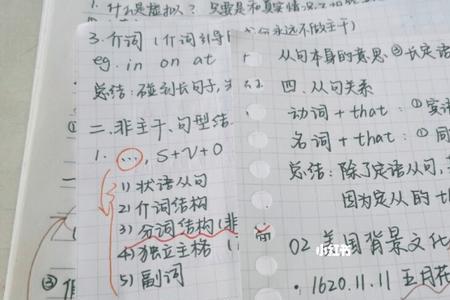 1. 什么是虚拟? 只要是和真实情况
3. 介词 (介词引导
永远不做主干)
eg. in on at
总结: 碰到长句子,
二. 非主干、句型结
1. ..., S+V+O
1) 状语从句
2) 介词结构
3) 分词结构 (非
4) 独立主格 (
5) 副词
从句本身的意思 ③ 长定语
四. 从句关系
动词 + that: ① 宾
名词 + that: ① 同
总结: 除了定语从句,
因为定从的 th
小红书
02 美国背景文化
· 1620.11.11 五月花